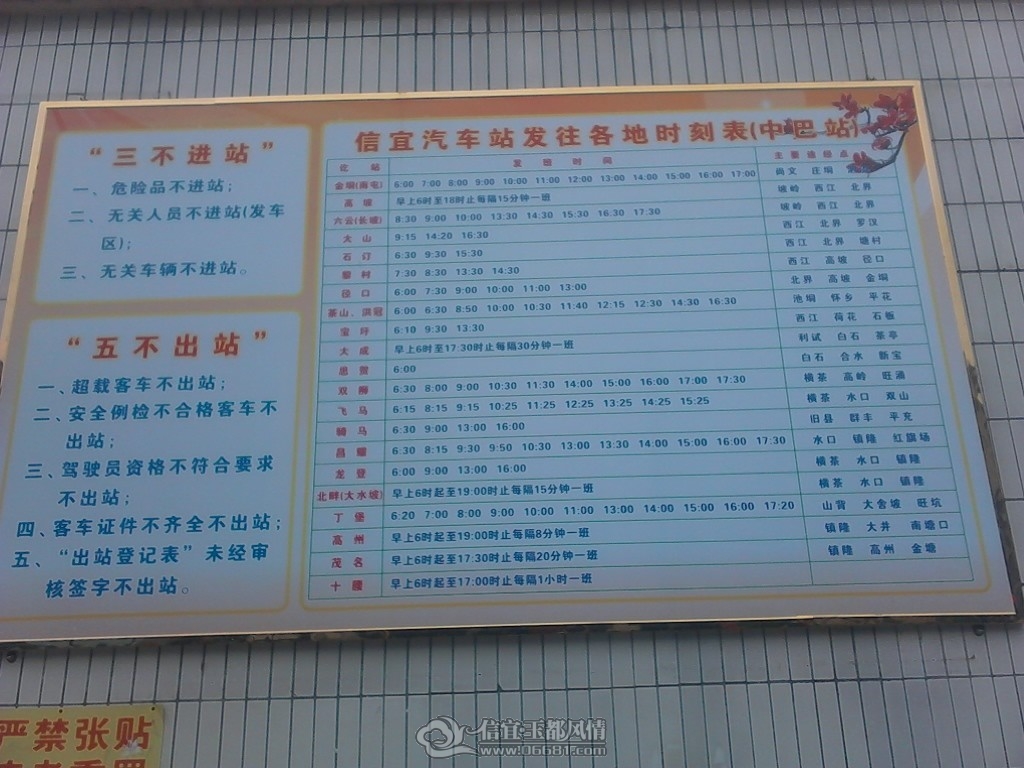 “三不进站”
一、危险品不进站；
二、无关人员不进站(发车
区)；
三、无关车辆不进站。
“五不出站”
一、超载客车不出站；
二、安全例检不合格客车不
出站；
三、驾驶员资格不符合要求
不出站；
四、客车证件不齐全不出站；
五、“出站登记表”未经审
核签字不出站。
信宜汽车站发往各地时刻表(中巴站)
化 站 发 班 时 间 主要途经点
金垌(南屯) 6:00 7:00 8:00 9:00 10:00 11:00 12:00 13:00 14:00 15:00 16:00 17:00 尚文 庄垌
高坡 早上6时至18时止每隔15分钟一班 坡岭 西江 北界
六云(长坡) 8:30 9:00 10:00 13:30 14:30 15:30 16:30 17:30 坡岭 西江 北界
大山 9:15 14:20 16:30 西江 北界 罗汉
石订 6:30 9:30 15:30 西江 北界 塘村
黎村 7:30 8:30 13:30 14:30 西江 高坡 径口
径口 6:00 7:30 9:00 10:00 11:00 13:00 北界 高坡 金垌
茶山、洪冠 6:00 6:30 8:50 10:00 10:30 11:40 12:15 12:30 14:30 16:30 池垌 怀乡 平花
宝圩 6:10 9:30 13:30 西江 荷花 石板
大成 早上6时至17:30时止每隔30分钟一班 利试 白石 茶亭
思贺 6:00 白石 合水 新宝
双狮 6:30 8:00 9:00 10:30 11:30 14:00 15:00 16:00 17:00 17:30 横茶 高岭 旺涌
飞马 6:15 8:15 9:15 10:25 11:25 12:25 13:25 14:25 15:25 横茶 水口 双山
骑马 6:30 9:00 13:00 16:00 旧县 群丰 平充
昌耀 6:30 8:15 9:30 9:50 10:30 13:00 13:30 14:00 15:00 16:00 17:30 水口 镇隆 红旗场
龙登 6:00 9:00 13:00 16:00 横茶 水口 镇隆
北畔(大水坡) 早上6时起至19:00时止每隔15分钟一班 横茶 水口 镇隆
丁堡 6:20 7:00 8:00 9:00 10:00 11:00 13:00 14:00 15:00 16:00 17:20 山背 大舍坡 旺坑
高州 早上6时起至19:00时止每隔8分钟一班 镇隆 大井 南塘口
茂名 早上6时起至17:30时止每隔20分钟一班 镇隆 高州 金塘
十腰 早上6时起至17:00时止每隔1小时一班
严禁张贴
信宜玉都风情
www.06681.com